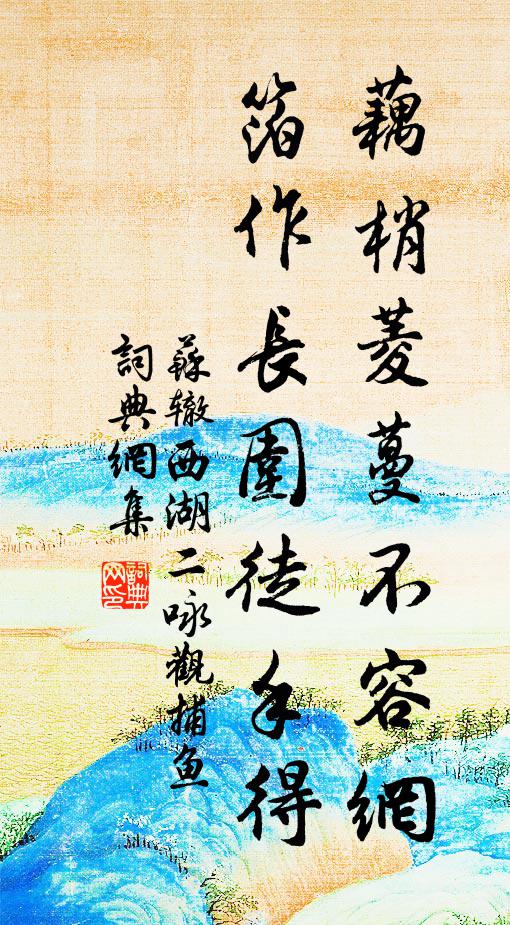 藕梢菱蔓不容網
箔作長圍徒手得
蘇辙西湖二咏觀捕鱼
詞典網集
詞典
网印